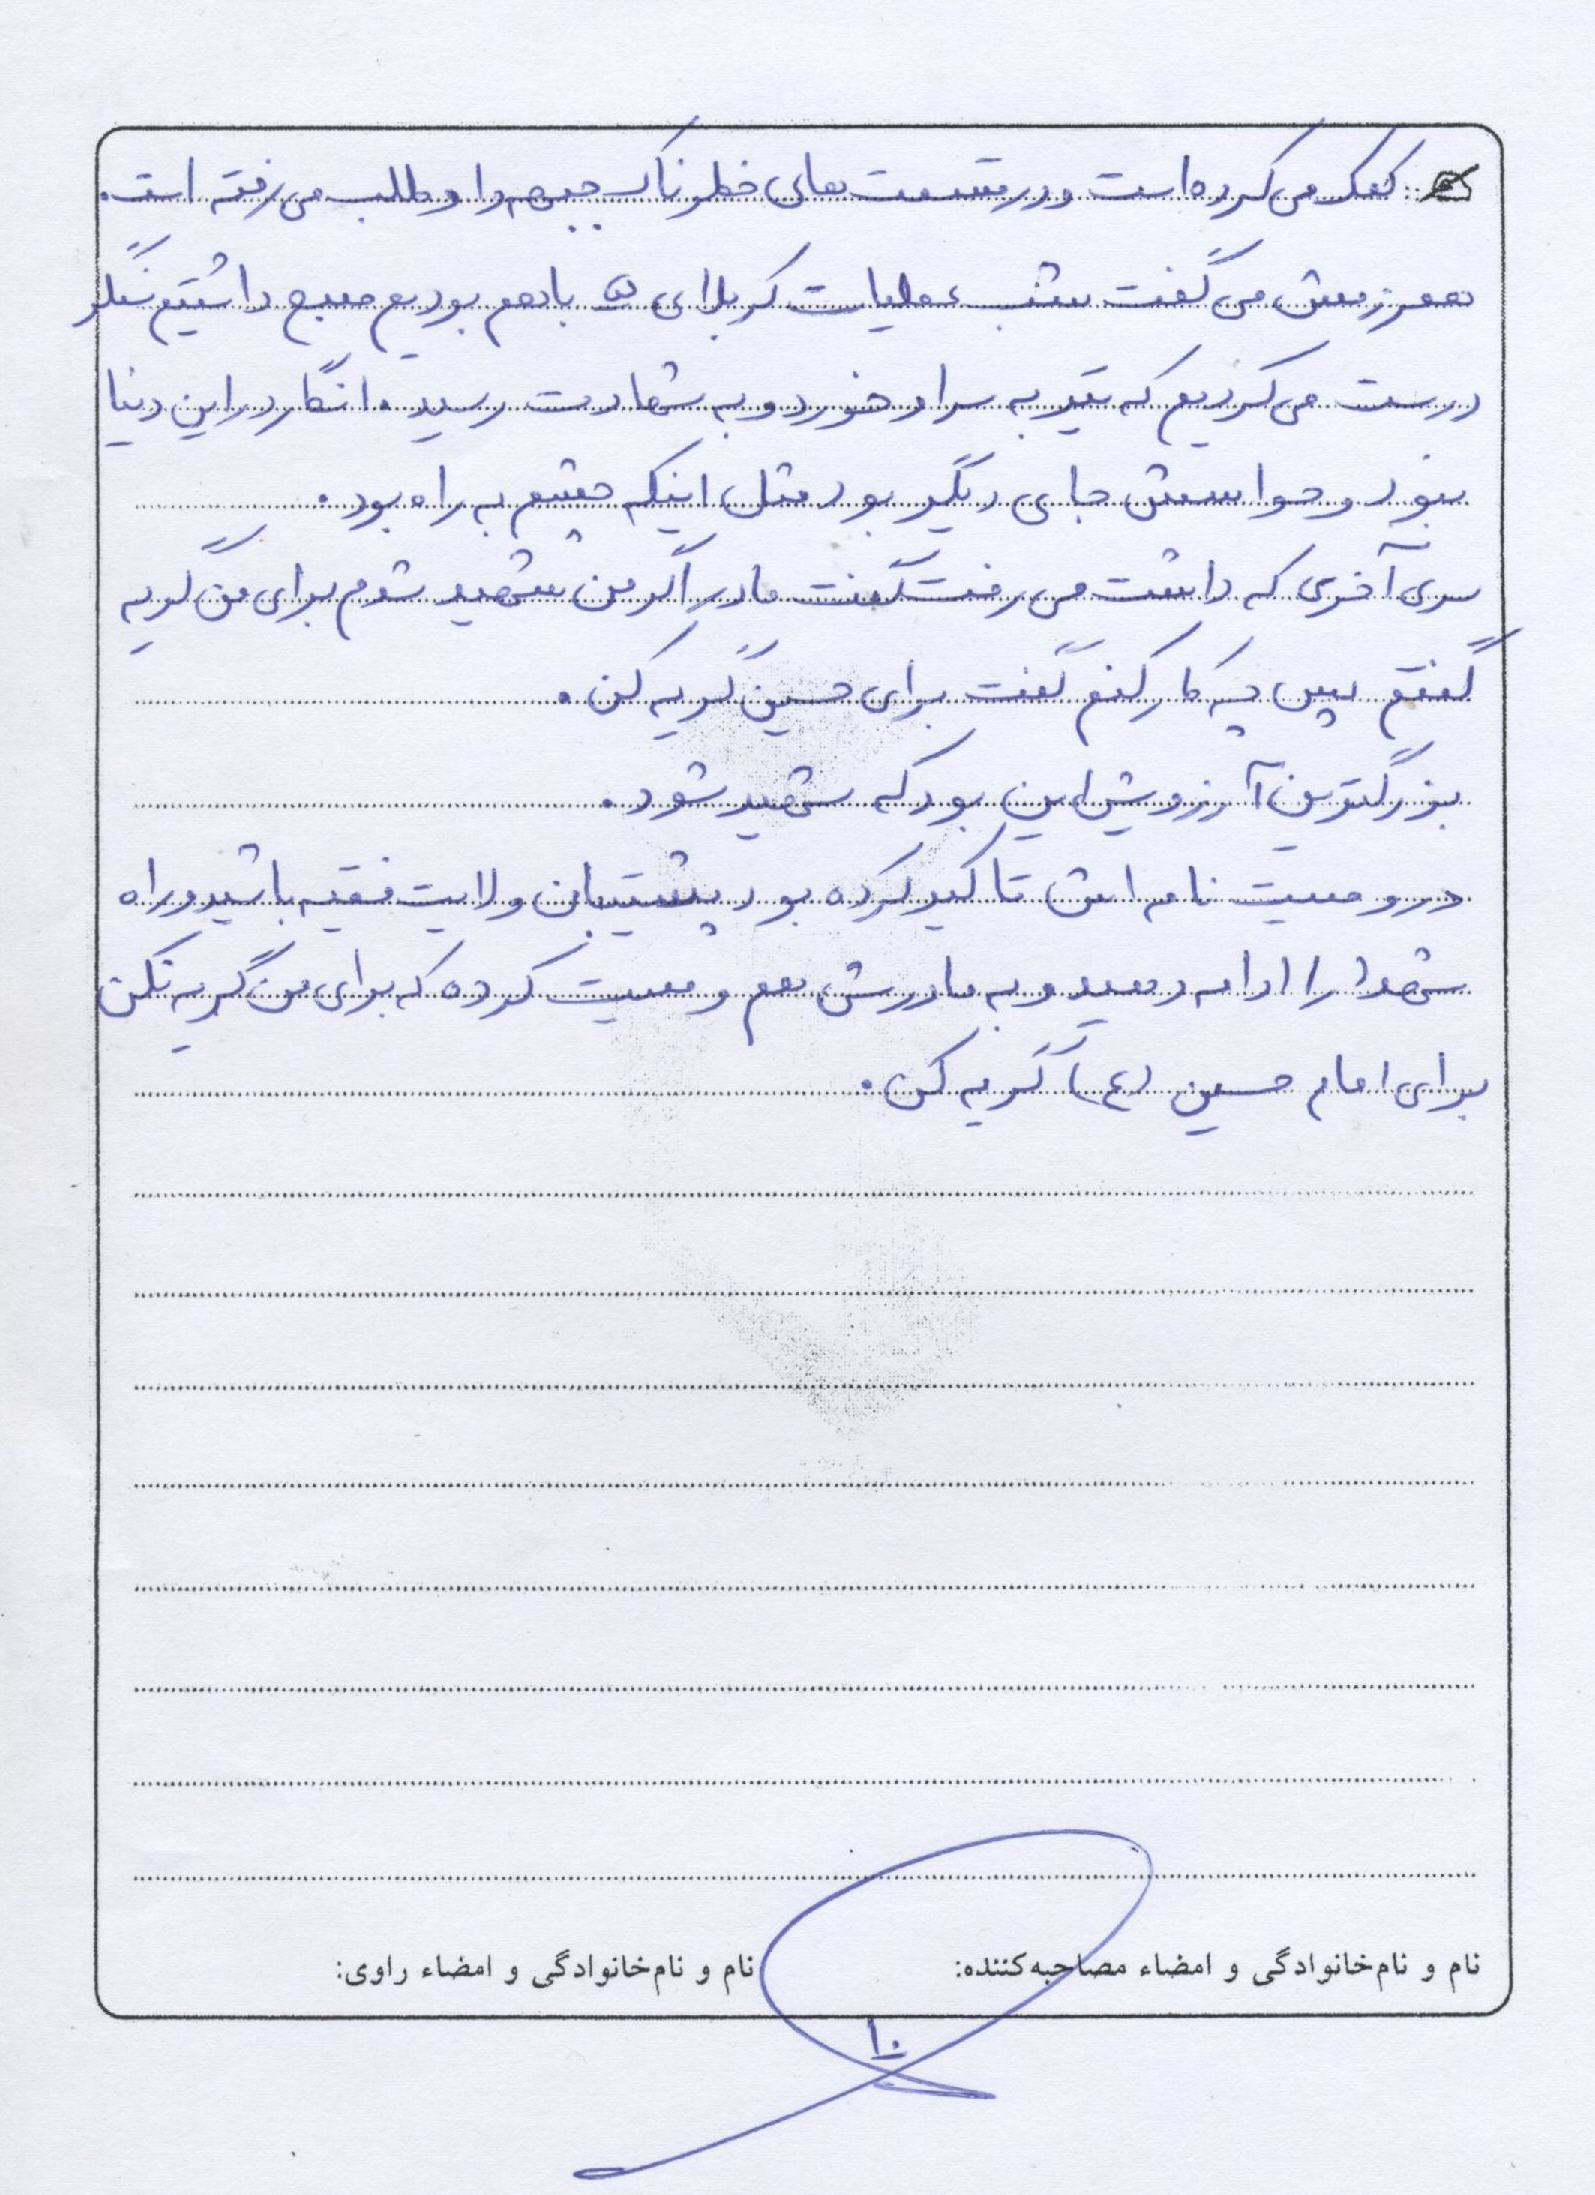 کمک می کرده است و در قسمت های خطرناک جبهه داوطلب می رفته است.
همرزمش می گفت شب عملیات کربلای ۵ با هم بودیم صبح داشتیم سنگر
درست می کردیم که تیر به سر او خورد و به شهادت رسید. انگار در این دنیا
نبود و حواسش جای دیگر بود مثل اینکه چشم به راه بود.
سری آخری که داشت می رفت گفت مادر اگر من شهید شوم برای من گریه
گفتم پس چه کار کنم گفت برای حسین گریه کن.
بزرگترین آرزویش این بود که شهید شود.
در وصیت نامه اش تاکید کرده بود پشتیبان ولایت فقیه باشید و راه
شهدا را ادامه دهید و به مادرش هم وصیت کرده که برای من گریه نکن
برای امام حسین (ع) گریه کن.
نام و نام‌خانوادگی و امضاء مصاحبه‌کننده: نام و نام‌خانوادگی و امضاء راوی:
۱۰